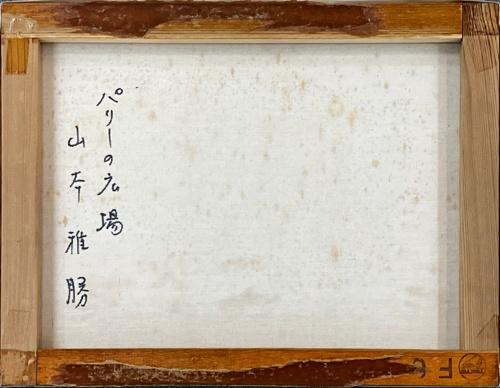 パリーの広場
山本雅勝
F6